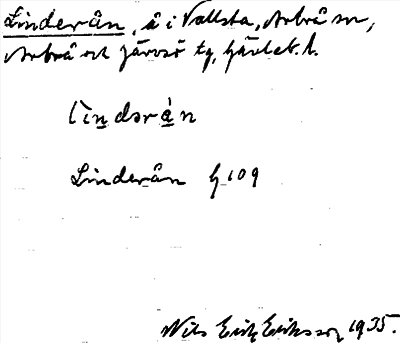 Linderån, å i Vallsta, Arbrå sn,
Arbrå och Järvsö tg, Gävleb. l.
lìndərå̀n
Linderån G 109
Nils Erik Eriksson 1935.